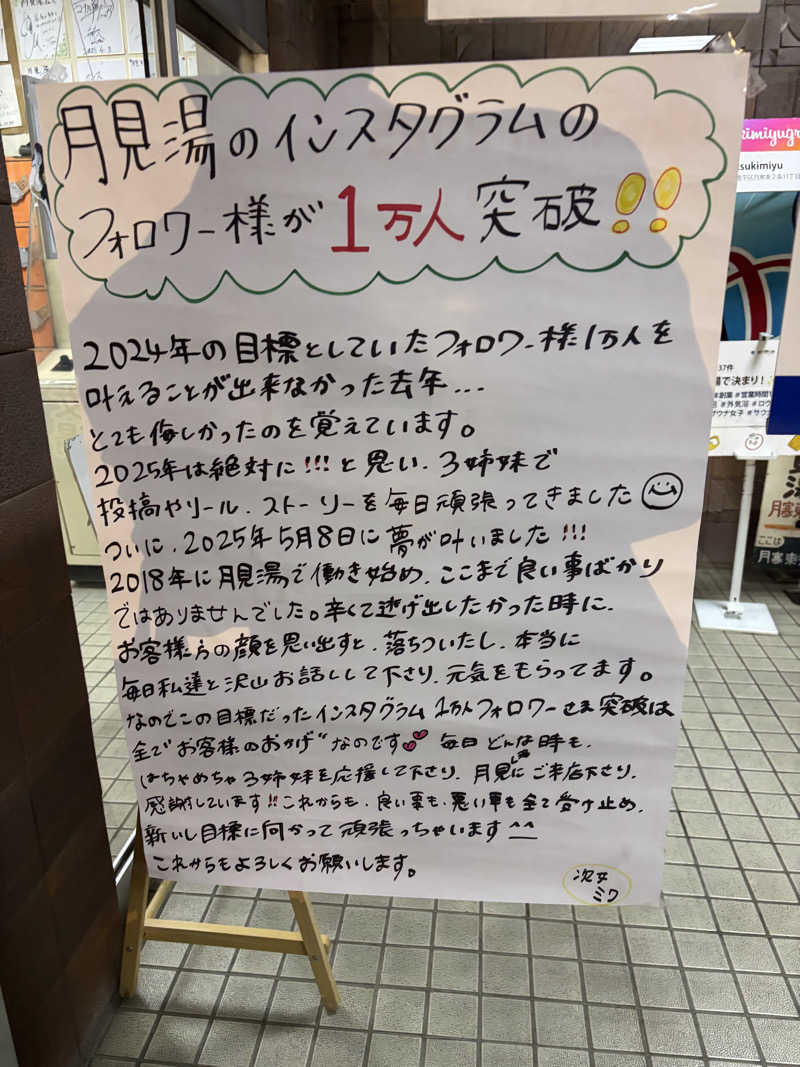 月見湯のインスタグラムの
フォロワー様が1万人突破!!
2024年の目標としていたフォロワー様1万人を
叶えることが出来なかった去年...
とても悔しかったのを覚えています。
2025年は絶対に!!!と思い、3姉妹で
投稿やリール、ストーリーを毎日頑張ってきました
ついに、2025年5月8日に夢が叶いました!!!
2018年に月見湯で働き始め、ここまで良い事ばかり
ではありませんでした。辛くて逃げ出したかった時に、
お客様方の顔を思い出すと、落ちついたし、本当に
毎日私達と沢山お話しして下さり、元気をもらってます。
なのでこの目標だったインスタグラム1万人フォロワーさま突破は
全て"お客様のおかげ"なのです💕 毎日どんな時も、
はちゃめちゃ3姉妹を応援して下さり、月見湯にご来店下さり、
感謝しています!!これからも、良い事も、悪い事も全て受け止め、
新しい目標に向かって頑張っちゃいます^^
これからもよろしくお願いします。
次女
ミワ
kimiyugr
sukimiyu
37件
湯で決まり!
#創業 #営業時間
#外気浴 #ロウ
サウナ女子 #サウ
ここは
月寒東